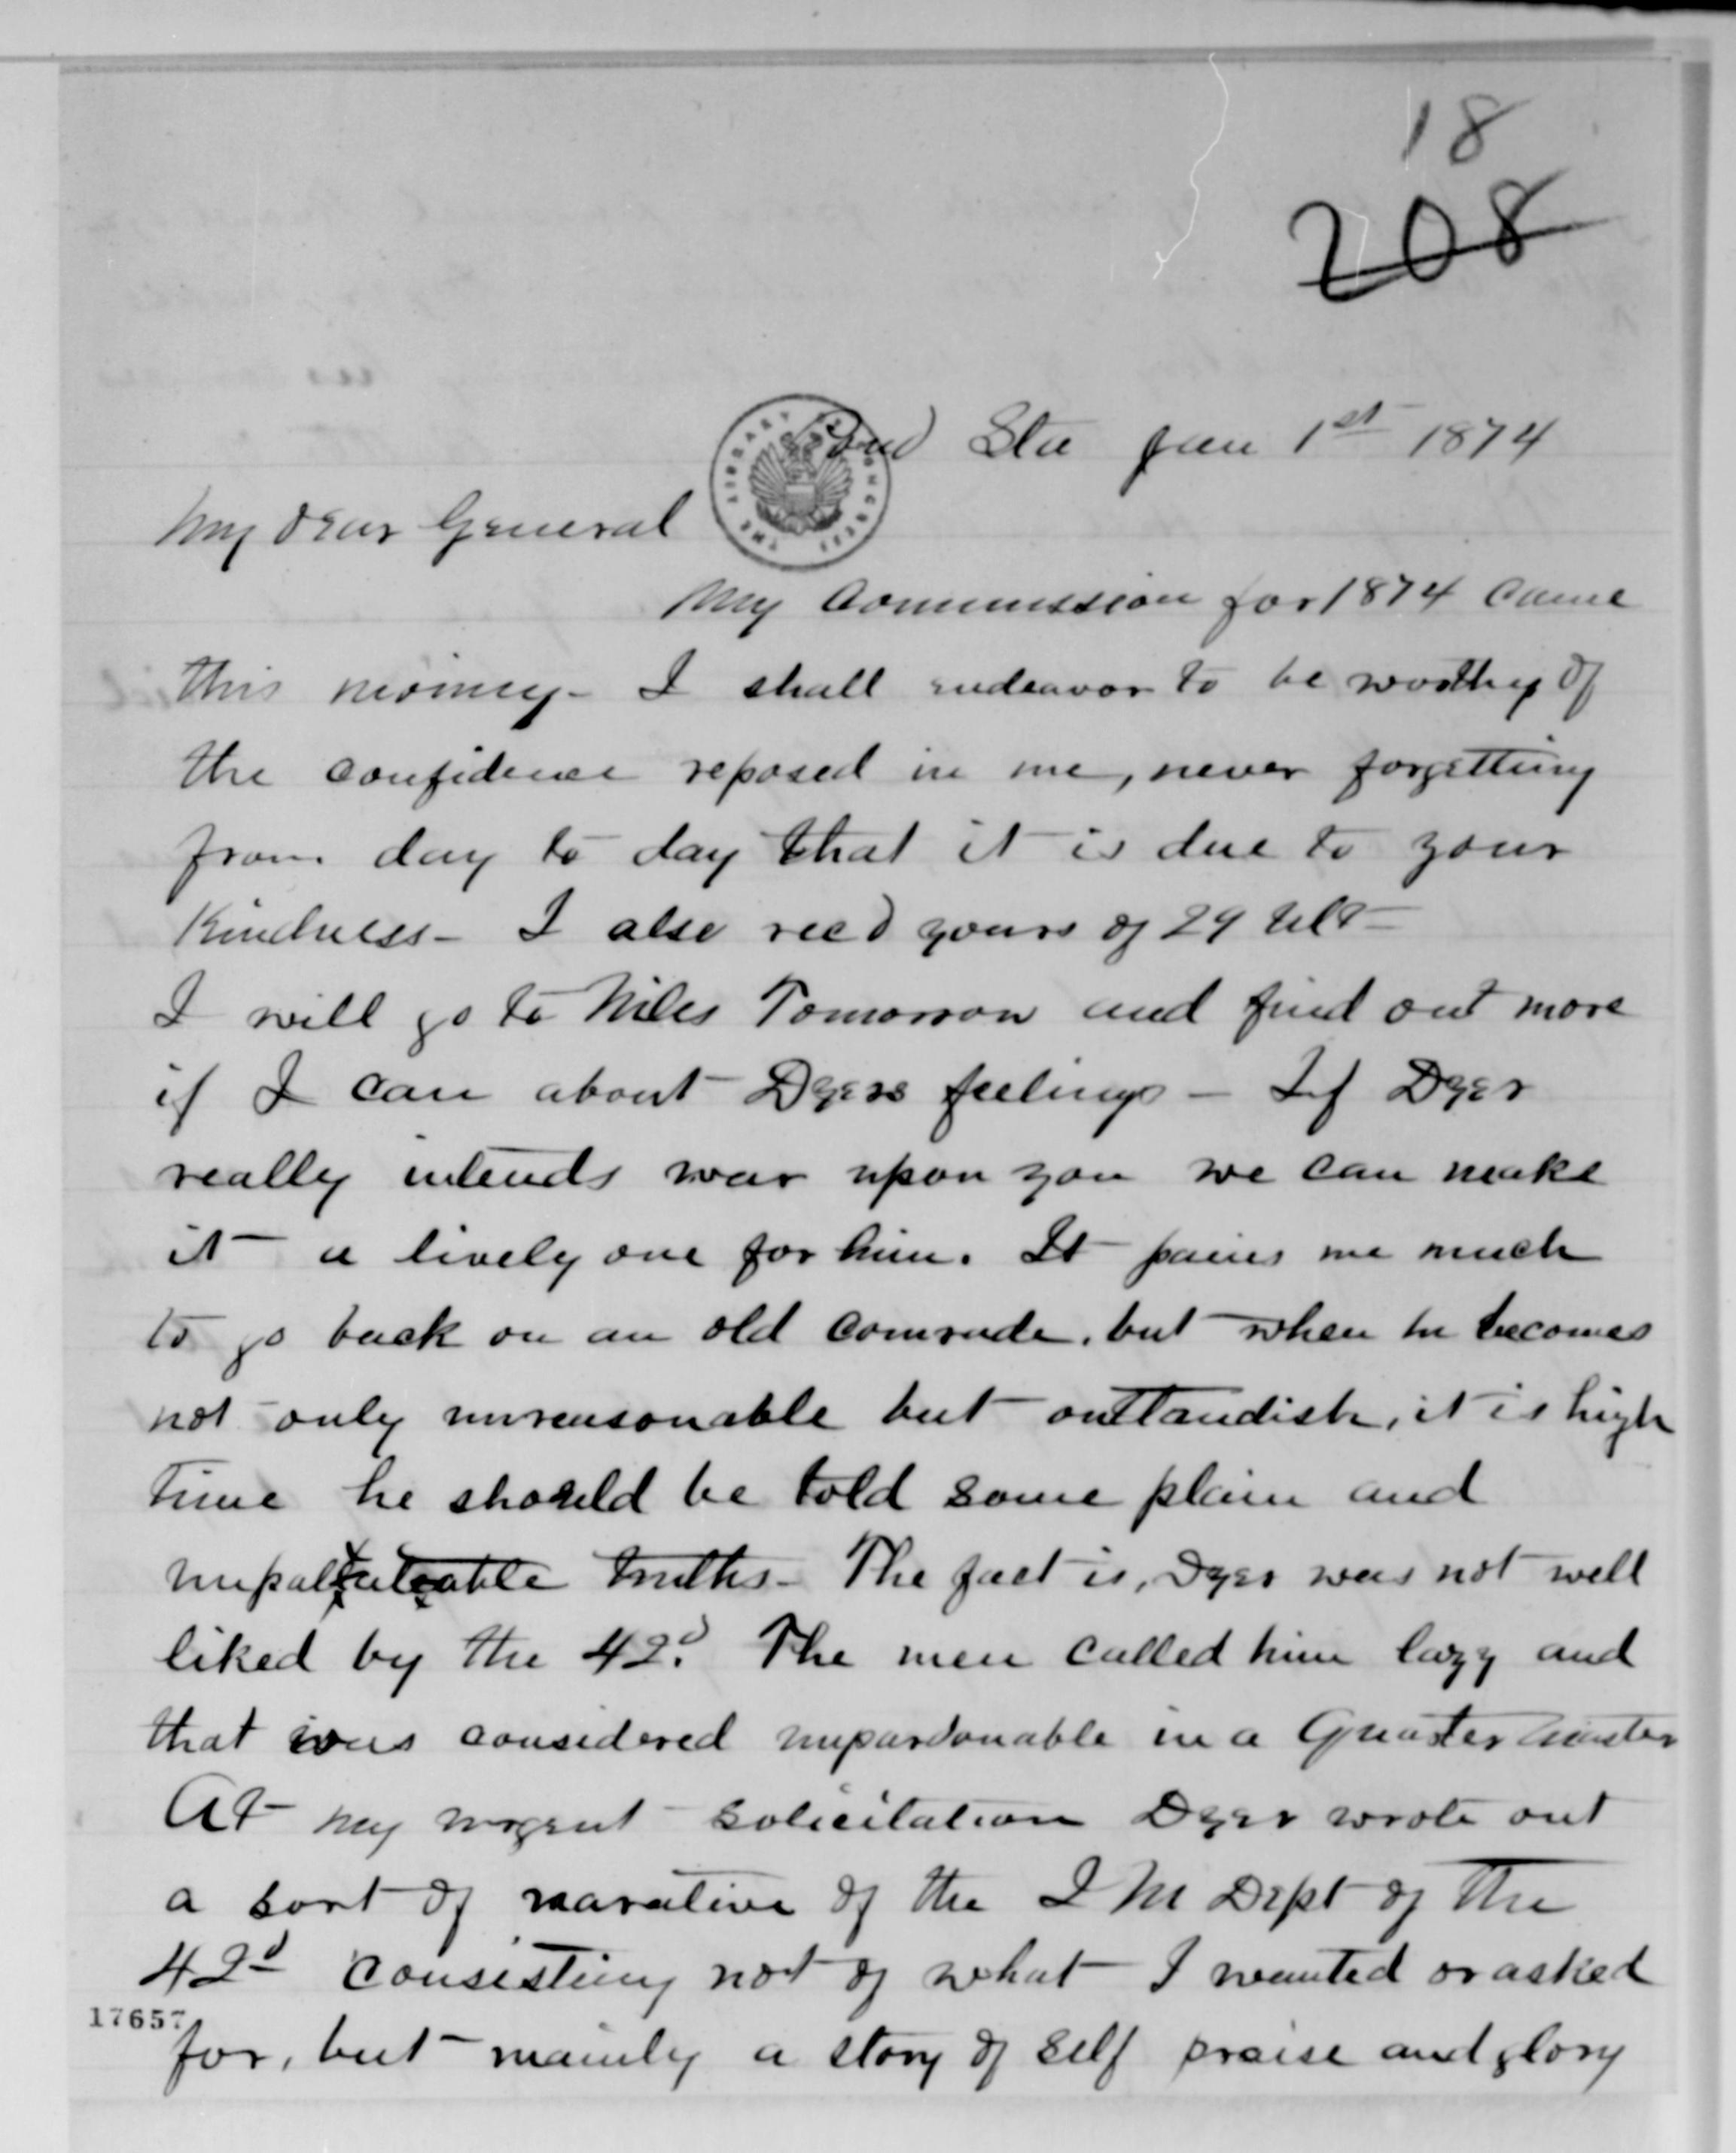 18
208
THE LIBRARY CONGRESS
Bond Sta Jan 1st 1874
My Dear General
My Commission for 1874 came
this morning - I shall endeavor to be worthy of
the confidence reposed in me, never forgetting
from day to day that it is due to your
Kindness - I also recd yours of 29 Ult -
I will go to Niles Tomorrow and find out more
if I can about Dyers feelings - If Dyer
really intends war upon you we can make
it a lively one for him. It pains me much
to go back on an old comrade, but when he becomes
not only unreasonable but outlandish, it is high
time he should be told some plain and
unpalatable truths - The fact is, Dyer was not well
liked by the 42d. The men called him lazy and
that was considered unpardonable in a Quarter Master
At my urgent solicitation Dyer wrote out
a sort of narative of the Q M Dept of the
42d consisting not of what I wanted or asked
17657
for, but mainly a story of self praise and glory